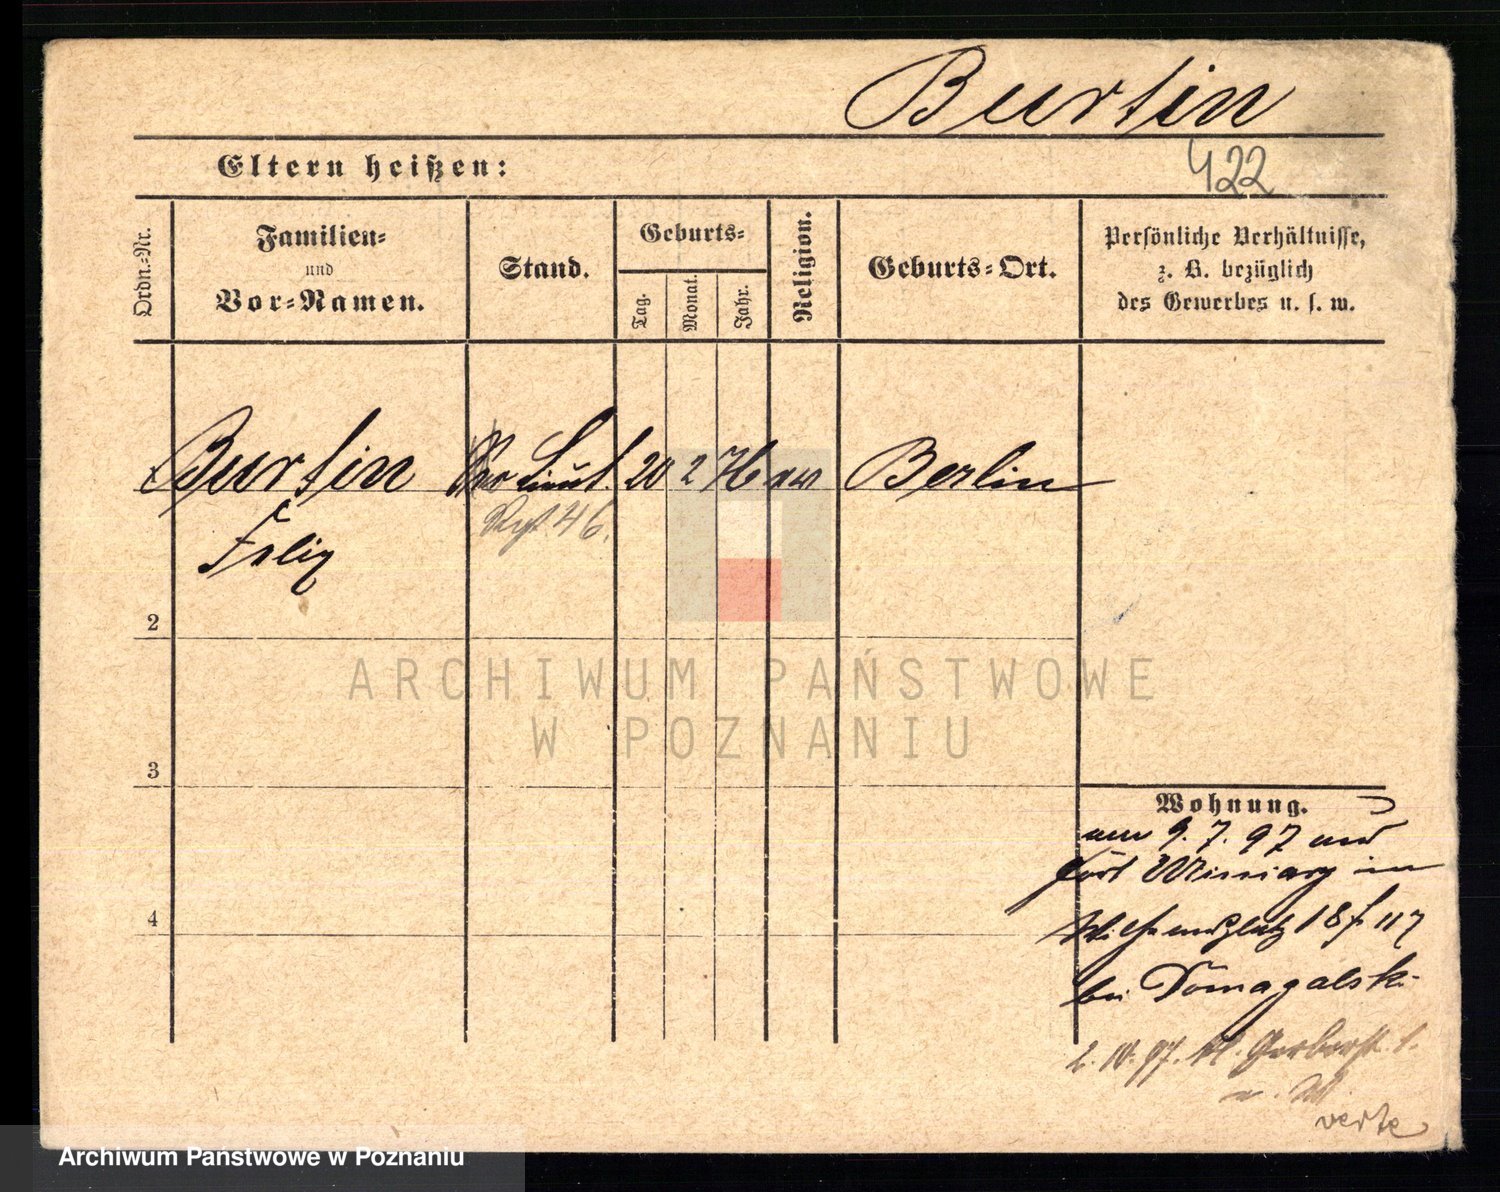 Burtin
Eltern heißen:
422
Ordn.-Nr.
Familien-
und
Vor-Namen.
Stand.
Geburts-
Tag.
Monat.
Jahr.
Religion.
Geburts-Ort.
Persönliche Verhältnisse,
z. B. bezüglich
des Gewerbes u. s. w.
Burtin
Felix
Lieut.
Rgt 46.
20
2
76
ev
Berlin
2
3
4
Wohnung.
am 9. 7. 97 aus
Fort Winiary in
Wilhelmsplatz 18 f 117
bei Domagalski
2. 10. 97. Gerberstr. 1.
verte
ARCHIWUM PAŃSTWOWE
W POZNANIU
Archiwum Państwowe w Poznaniu